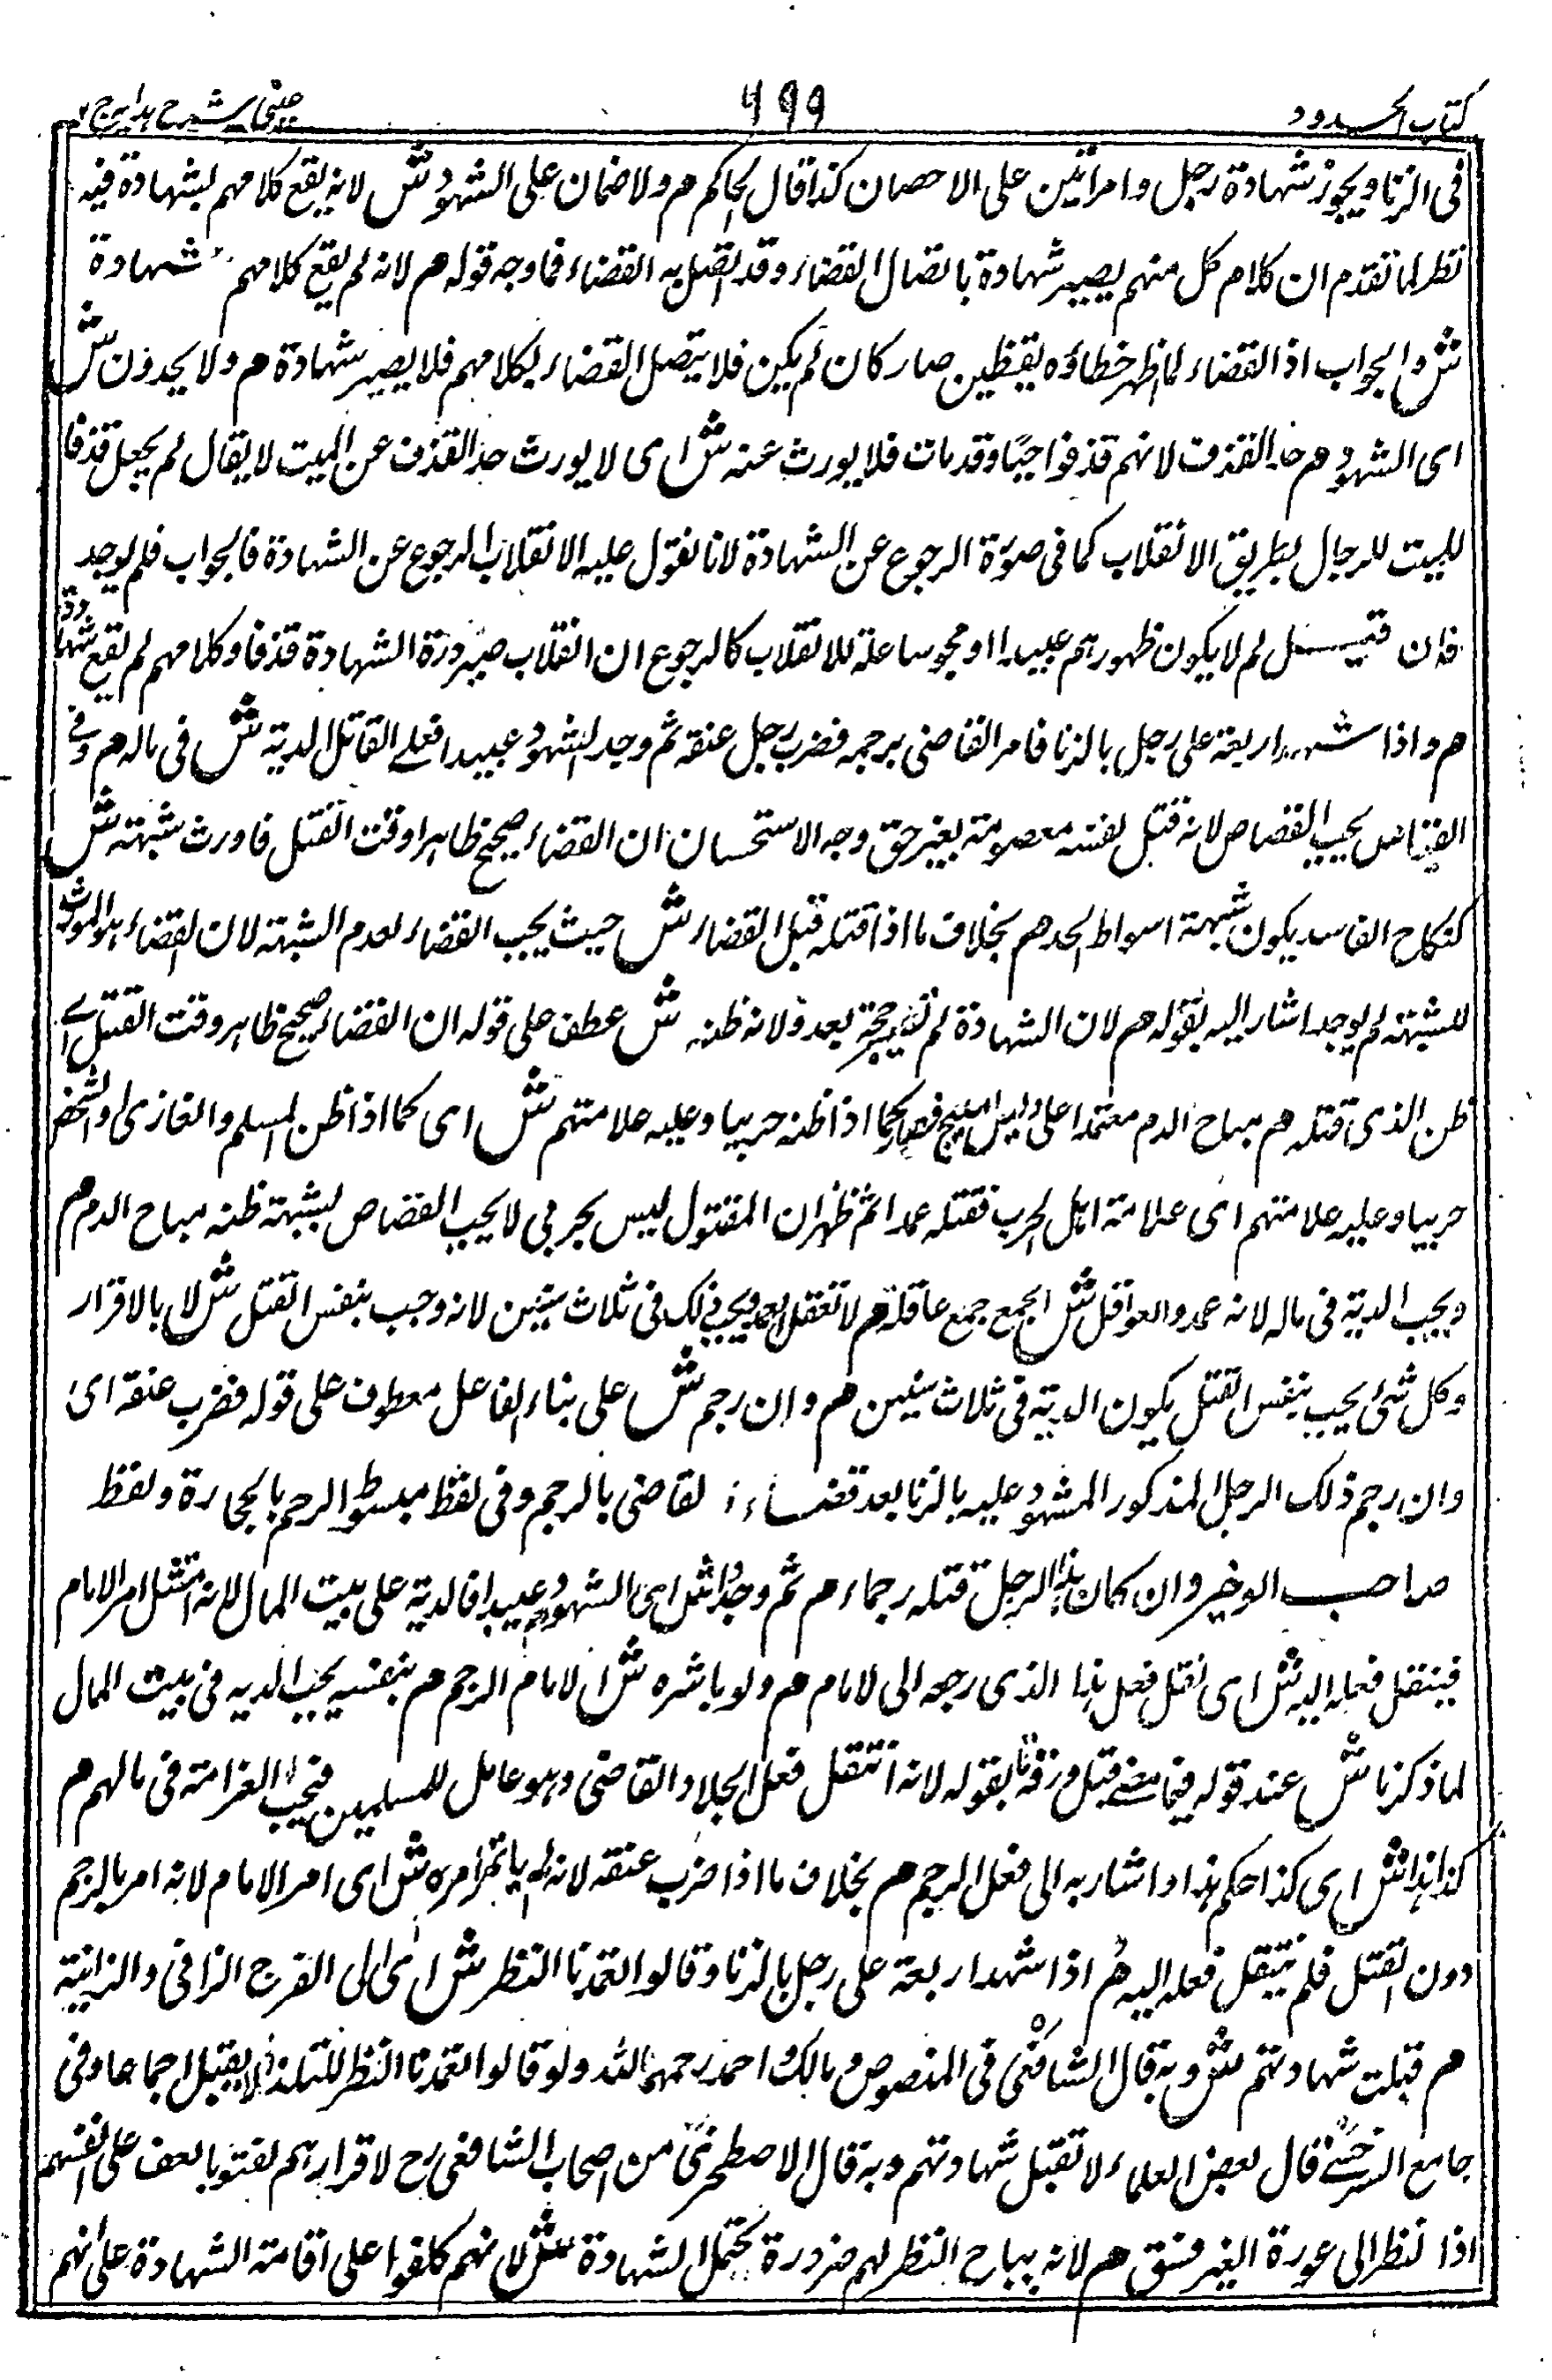 كتاب الحدود
٦٩٩
عينى شرح هدايه ج ٢
فى الزنا ويجوز شهادة رجل وامرأتين على الاحصان كذا قال الحاكم هم ولا ضمان على الشهود ش لانه يقع كلامهم بشهادة فيه
نظر لما تقدم ان كلام كل منهم يصير شهادة باتصال القضاء وقد اتصل به القضاء فما وجه قوله هم لانه لم يقع كلامهم شهادة
ش والجواب اذ القضاء لما ظهر خطاؤه بيقين صار كان لم يكن فلا يتصل القضاء بكلامهم فلا يصير شهادة هم ولا يحدون ش
اى الشهود هم حد القذف لانهم قذفوا حيا وقد مات فلا يورث عنه ش اى لا يورث حد القذف عن الميت لا يقال لم يجعل قذفا
للميت للرجال بطريق الانقلاب كما فى صورة الرجوع عن الشهادة لانا نقول عليه الانقلاب الرجوع عن الشهادة فالجواب فلم يوجد
فان قيل لم لا يكون ظهورهم عبيدا او مجوسا علة للانقلاب كالرجوع ان انقلاب صيرورة الشهادة قذفا وكلامهم لم يقع شهادة
هم واذا شهد اربعة على رجل بالزنا فامر القاضى برجمه فضرب رجل عنقه ثم وجد الشهود عبيدا فعلى القاتل الدية ش فى ماله هم وفى
القياس يجب القصاص لانه قتل نفسا معصومة بغير حق وجه الاستحسان ان القضاء صحيح ظاهرا وقت القتل فاورث شبهة ش
كنكاح الفاسد يكون شبهة اسواط الحد هم بخلاف ما اذا قتله قبل القضاء ش حيث يجب القضاء لعدم الشبهة لان القضاء هو المورث
للشبهة لم يوجد اشار اليه بقوله هم لان الشهادة لم تصر حجة بعد ولانه ظنه ش عطف على قوله ان القضاء صحيح ظاهر وقت القتل اى
ظن الذى قتله هم مباح الدم معتمدا على دليل مبيح فصار كما اذا ظنه حربيا وعليه علامتهم ش اى كما اذا ظن المسلم والغازى او الشخص
حربيا وعليه علامتهم اى علامة اهل الحرب فقتله عمدا ثم ظهر ان المقتول ليس بحربى لا يجب القصاص لشبهة ظنه مباح الدم هم
ويجب الدية فى ماله لانه عمد والعواقل ش الجمع جمع عاقلة هم لا تعقل العمد ويجب ذلك فى ثلاث سنين لانه وجب بنفس القتل ش لا بالاقرار
وكل شئ يجب بنفس القتل يكون الدية فى ثلاث سنين هم وان رجم ش على بناء الفاعل معطوف على قوله فضرب عنقه اى
وان رجم ذلك الرجل المذكور المشهود عليه بالزنا بعد قضاء القاضى بالرجم وفى لفظ مبسوط الرجم بالحجارة ولفظ
صاحب الوخير وان كان هذا الرجل قتله رجماء هم ثم وجدوا ش اى الشهود هم عبيدا فالدية على بيت المال لانه امتثل امر الامام
فينتقل فعله اليه ش اى نقل فعل هذا الذى رجمه الى لامام هم ولو باشره ش ا لامام الرجم هم بنفسه يجب الديه فى بيت المال
لما ذكرنا ش عند قوله فيما مضى قبل ورقة بقوله لانه انتقل فعل الجلاد القاضى وهو عامل للمسلمين فيجب الغرامة فى مالهم هم
كذا هذا ش اى كذا حكم هذا واشار به الى فعل الرجم هم بخلاف ما اذا ضرب عنقه لانه لم ياتمر امره ش اى امر الامام لانه امر بالرجم
دون القتل فلم ينتقل فعله اليه هم اذا شهد اربعة على رجل بالزنا وقالوا تعمدنا النظر ش اى الى الفرج الزانى والزانية
هم قبلت شهادتهم ش وبه قال الشافعى فى المنصوص ومالك واحمد رحمهم الله ولو قالوا تعمدنا النظر للتلذذ لا يقبل اجماعا وفى
جامع السرخسى قال بعض العلماء لا تقبل شهادتهم وبه قال الاصطخرى من اصحاب الشافعى رح لاقرارهم على انفسهم
اذا نظر الى عورة الغير فسق هم لانه يباح النظر لهم ضرورة تحمل الشهادة ش لانهم كلفوا على اقامة الشهادة على انهم